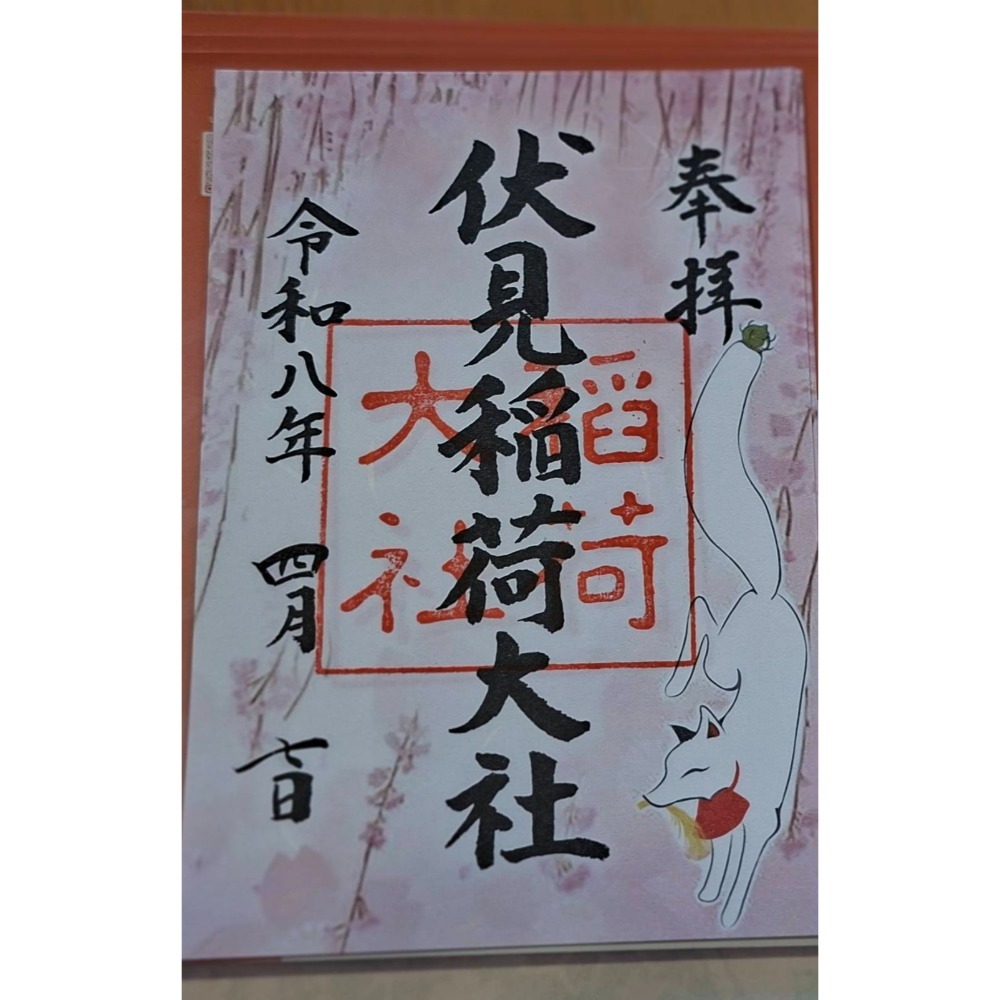 奉拝
伏見稲荷大社
稲荷
大社
令和八年 四月 七日